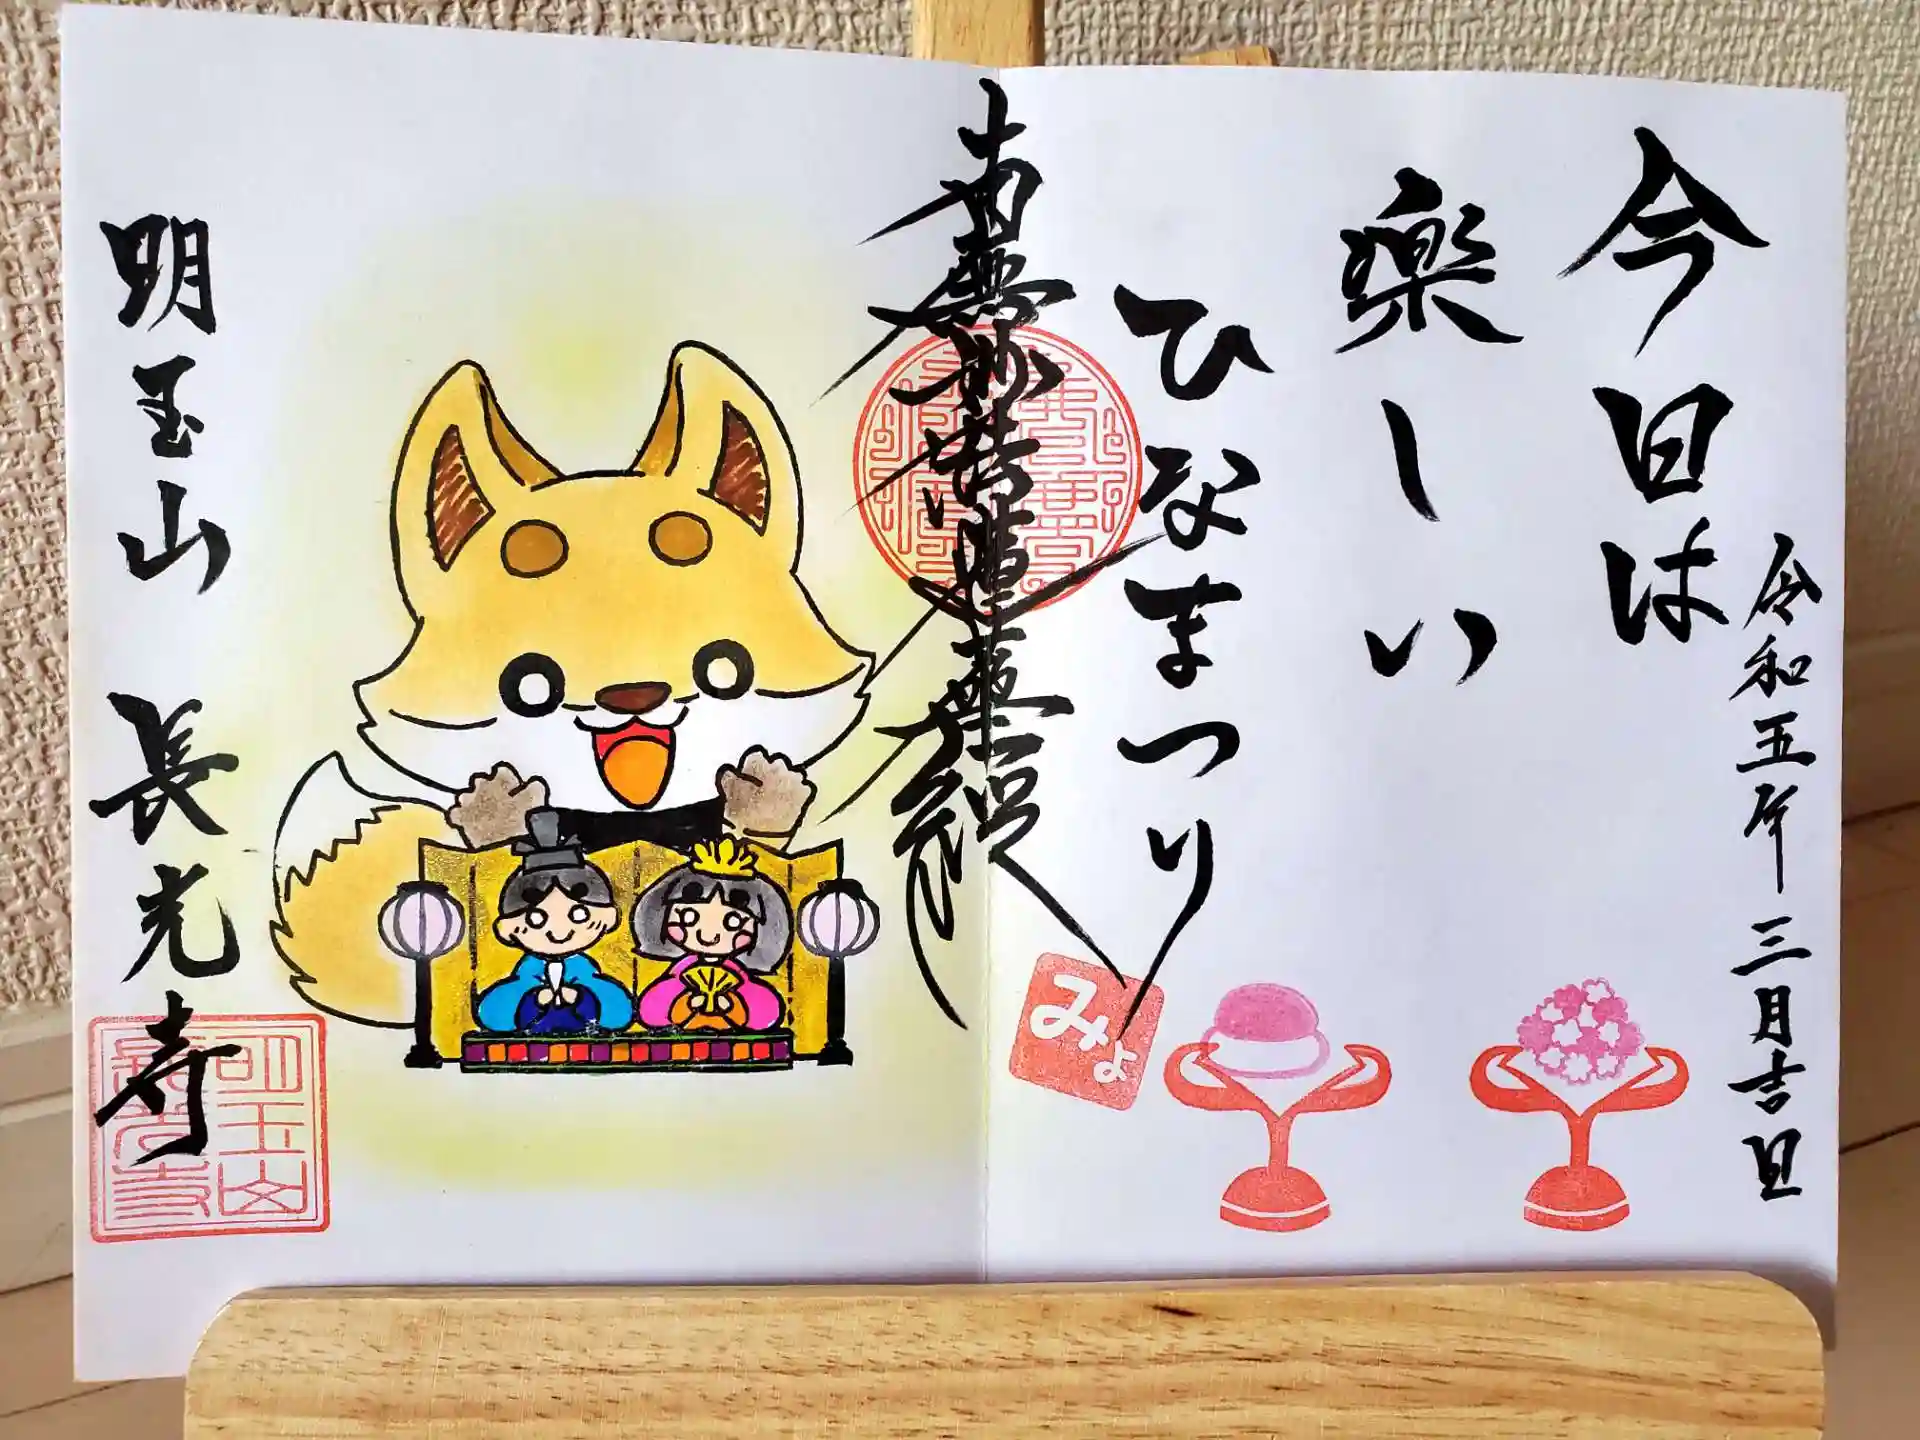 令和五年三月吉日
今日は
楽しい
ひなまつり
南無妙法蓮華経
みょ
明玉山 長光寺
明玉山
長光寺